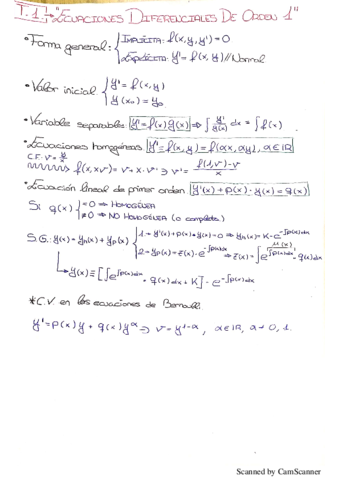 T.1 → "ECUACIONES DIFERENCIALES DE ORDEN 1"
• Forma general: { IMPLÍCITA: f(x, y, y') = 0
EXPLÍCITA: y' = f(x, y) // Normal
• Valor inicial { y' = f(x, y)
y(x₀) = y₀
• Variables separables: y' = f(x) g(x) ⇒ ∫ y'/g(x) dx = ∫ f(x)
• Ecuaciones homogéneas: y' = f(x, y) = f(αx, αy), α ∈ ℝ
C.F: v = y/x
f(x, xv) = v + x · v' ⇒ v' = (f(1, v) - v)/x
• Ecuación lineal de primer orden y'(x) + p(x) · y(x) = q(x)
Si q(x) { = 0 → HOMOGÉNEA
≠ 0 → NO HOMOGÉNEA (o completa)
S.G.: y(x) = yₕ(x) + yₚ(x) { 1 → y'(x) + p(x) · y(x) = 0 → yₕ(x) = K · e^(-∫p(x)dx)
μ(x)
2 → yₚ(x) = z(x) · e^(-∫p(x)dx) → z(x) = ∫ e^(∫p(x)dx) · q(x)dx
y(x) = [∫ e^(∫p(x)dx) · q(x) dx + K] · e^(-∫p(x)dx)
* C.V. en las ecuaciones de Bernoulli
y' = p(x) y + q(x) y^α ⇒ v = y^(1-α), α ∈ ℝ, α ≠ 0, 1.
Scanned by CamScanner